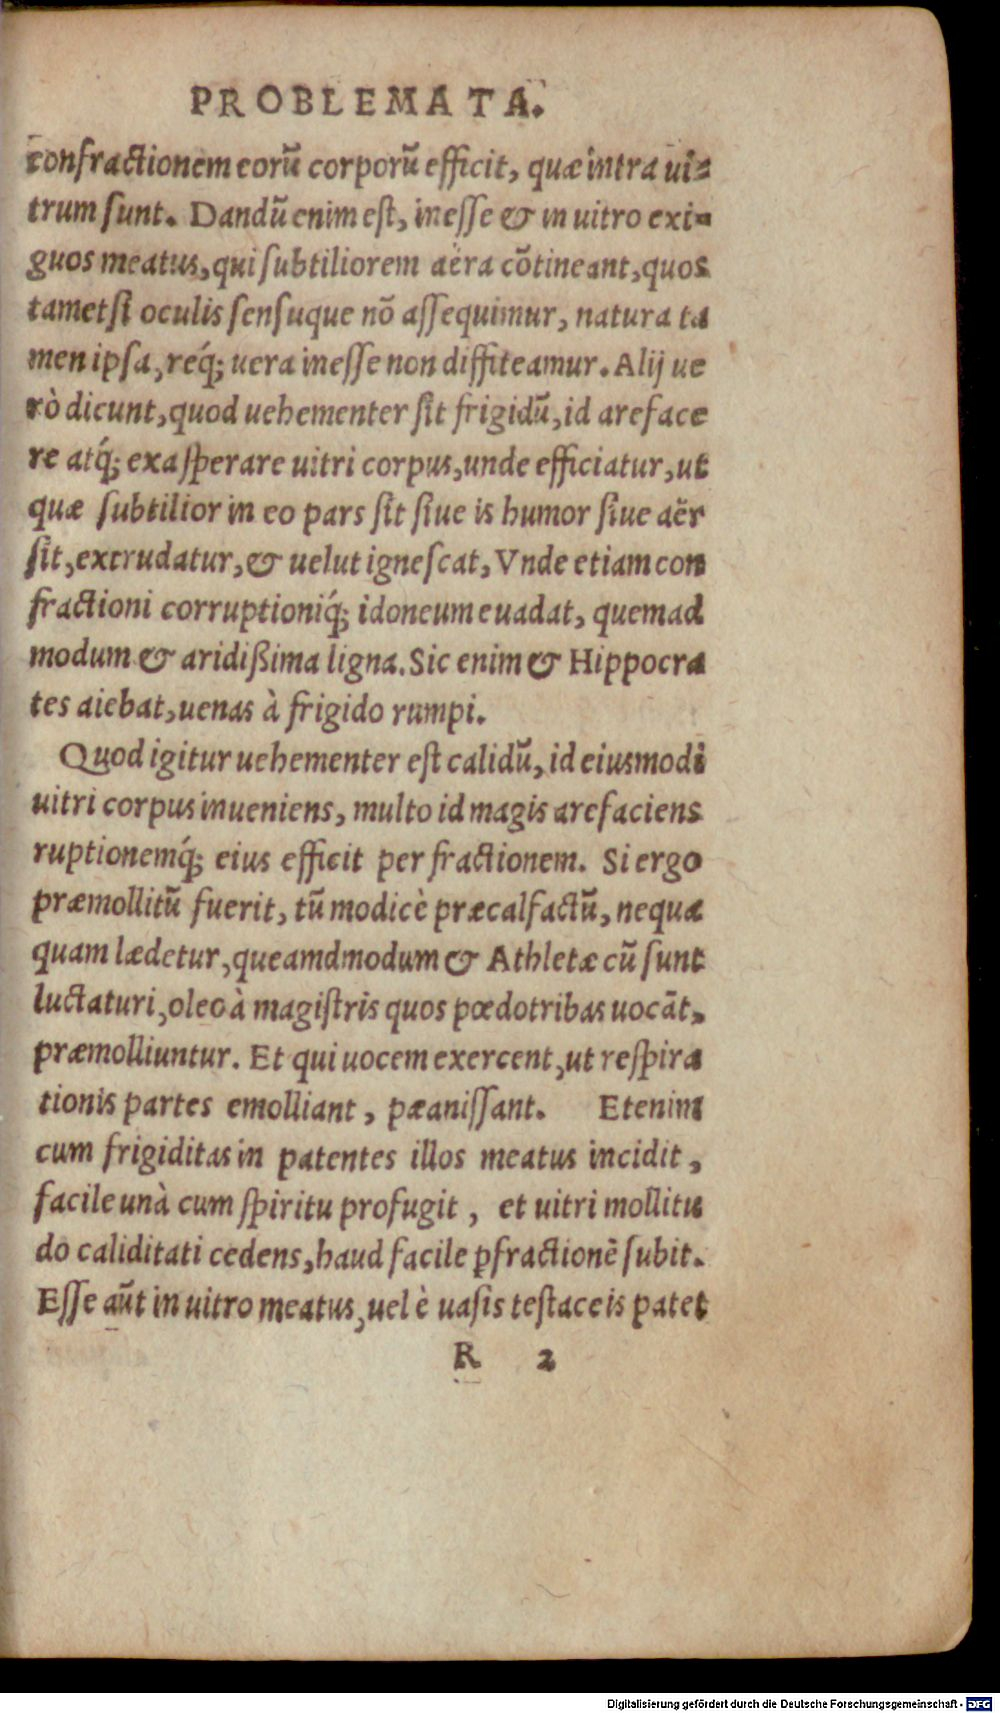 PROBLEMATA.
confractionem eorū corporū efficit, quæ intra ui=
trum sunt. Dandū enim est, inesse & in uitro exi=
guos meatus, qui subtiliorem aëra cōtineant, quos
tametsi oculis sensuque nō assequimur, natura ta
men ipsa, req́; uera inesse non diffiteamur. Alij ue
rò dicunt, quod uehementer sit frigidū, id areface
re atq́; exasperare uitri corpus, unde efficiatur, ut
quæ subtilior in eo pars sit siue is humor siue aër
sit, extrudatur, & uelut ignescat, Vnde etiam con
fractioni corruptioniq́; idoneum euadat, quemad
modum & aridißima ligna. Sic enim & Hippocra
tes aiebat, uenas à frigido rumpi.
Quod igitur uehementer est calidū, id eiusmodi
uitri corpus inueniens, multo id magis arefaciens
ruptionemq́; eius efficit per fractionem. Si ergo
præmollitū fuerit, tū modicè præcalfactū, nequa
quam lædetur, queamdmodum & Athletæ cū sunt
luctaturi, oleo à magistris quos pœdotribas uocāt,
præmolliuntur. Et qui uocem exercent, ut respira
tionis partes emolliant, pæanissant. Etenim
cum frigiditas in patentes illos meatus incidit,
facile unà cum spiritu profugit, et uitri mollitu
do caliditati cedens, haud facile ꝑfractionē subit.
Esse aūt in uitro meatus, uel è uasis testaceis patet
R 2
Digitalisierung gefördert durch die Deutsche Forschungsgemeinschaft - DFG